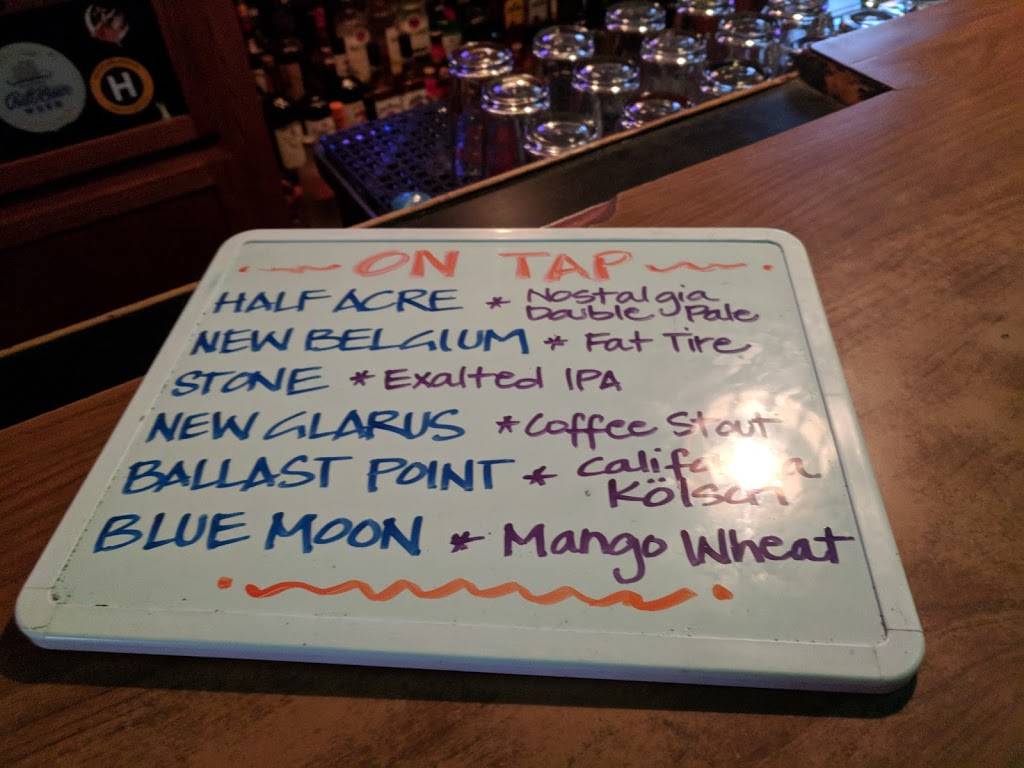 ON TAP
HALF ACRE * Nostalgia Double Pale
NEW BELGIUM * Fat Tire
STONE * Exalted IPA
NEW GLARUS * Coffee Stout
BALLAST POINT * California Kölsch
BLUE MOON * Mango Wheat
H